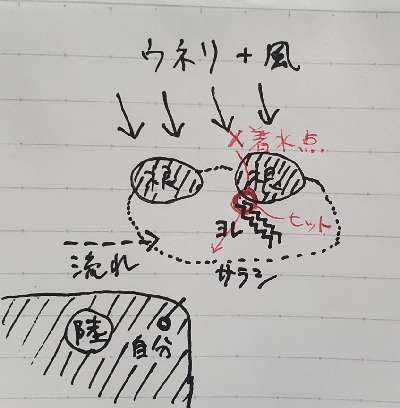 ウネリ+風
×着水点
根
根
ヨレ
ヒット
流れ
サラシ
陸
自分